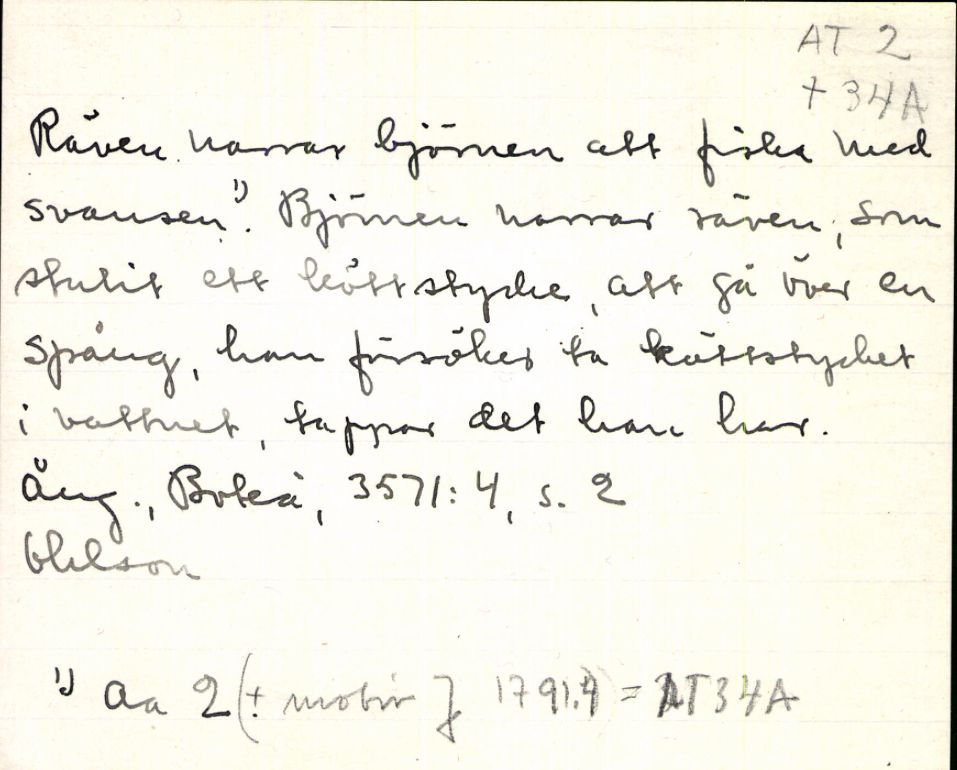 AT 2
+ 34A
Räven narrar björnen att fiska med
svansen¹⁾. Björnen narrar räven, som
stulit ett köttstycke, att gå över en
spång, han försöker ta köttstycket
i vattnet, tappar det han har.
Ång., Boteå, 3571:4, s. 2
Ohlson
¹⁾ Aa 2 (+ motiv J 1791.4) = AT34A